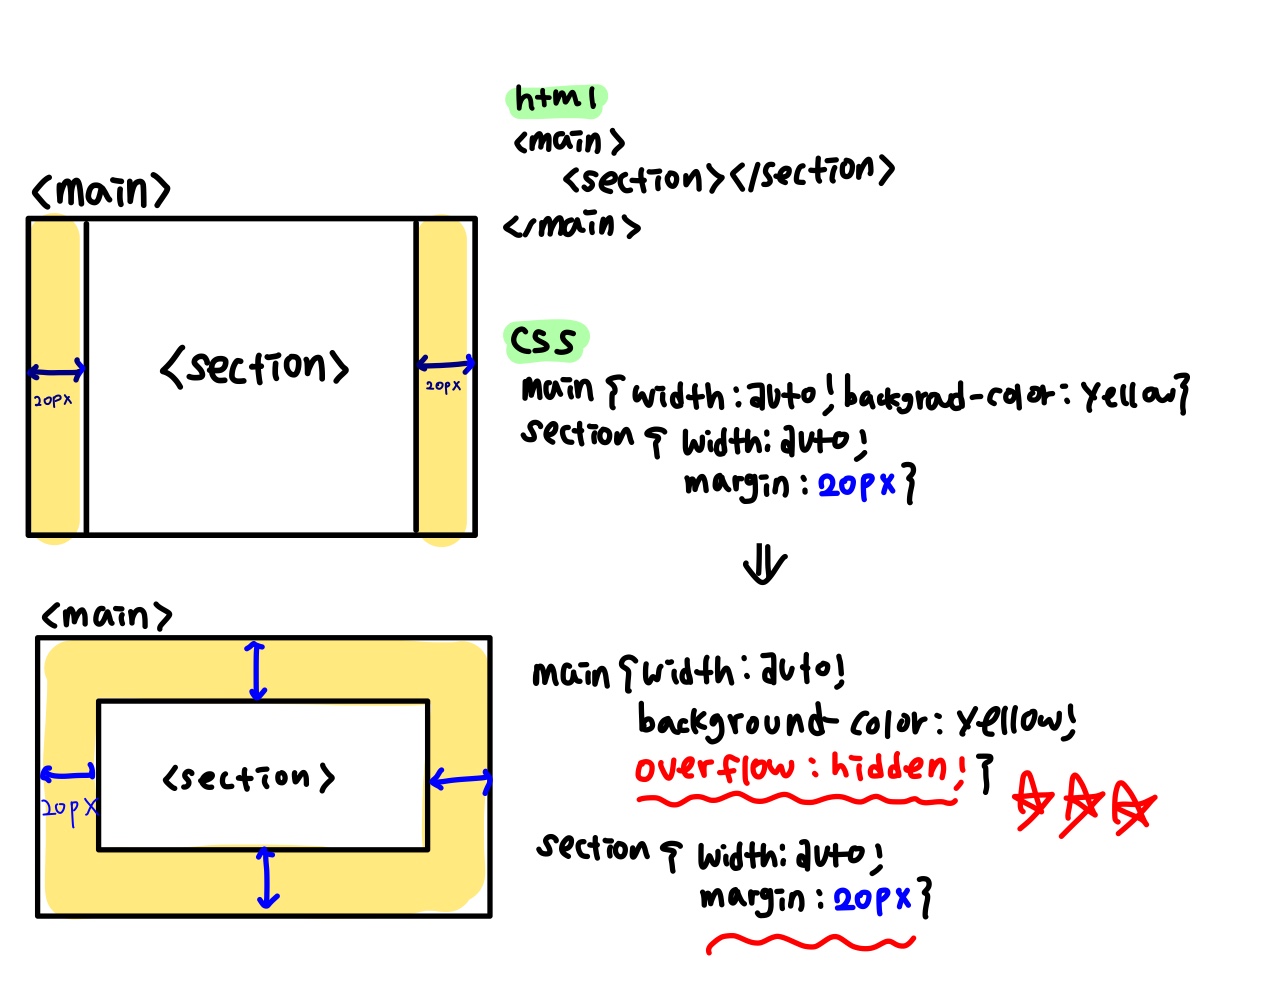 html
<main>
<section></section>
</main>
<main>
<section>
20px
20px
css
main { width: auto; backgrad-color: yellow}
section { width: auto;
margin: 20px}
⇓
<main>
<section>
20px
main { width: auto;
background-color: yellow;
overflow: hidden; }
section { width: auto;
margin: 20px}